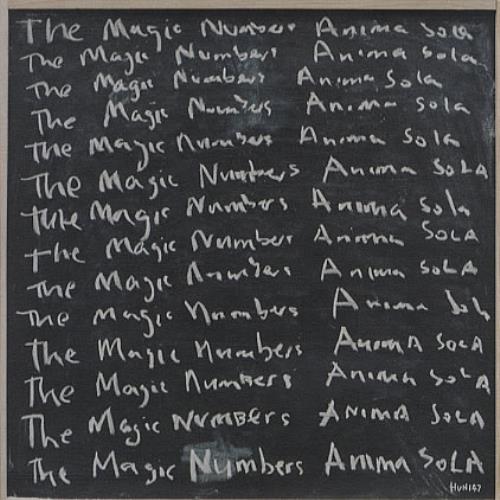 The Magic Numbers Anima Sola
The Magic Numbers Anima Sola
The Magic Numbers Anima Sola
The Magic Numbers Anima Sola
The Magic Numbers Anima Sola
The Magic Numbers Anima SoLA
The Magic Numbers Anima Sola
the Magic Numbers Anima SoLA
The Magic Numbers Anima SoLA
The Magic Numbers Anima Sola
The Magic Numbers AnimA SoLA
The Magic Numbers Anima SoLA
The Magic NumBErs ANimA SoLA
The Magic Numbers Anima SoLA